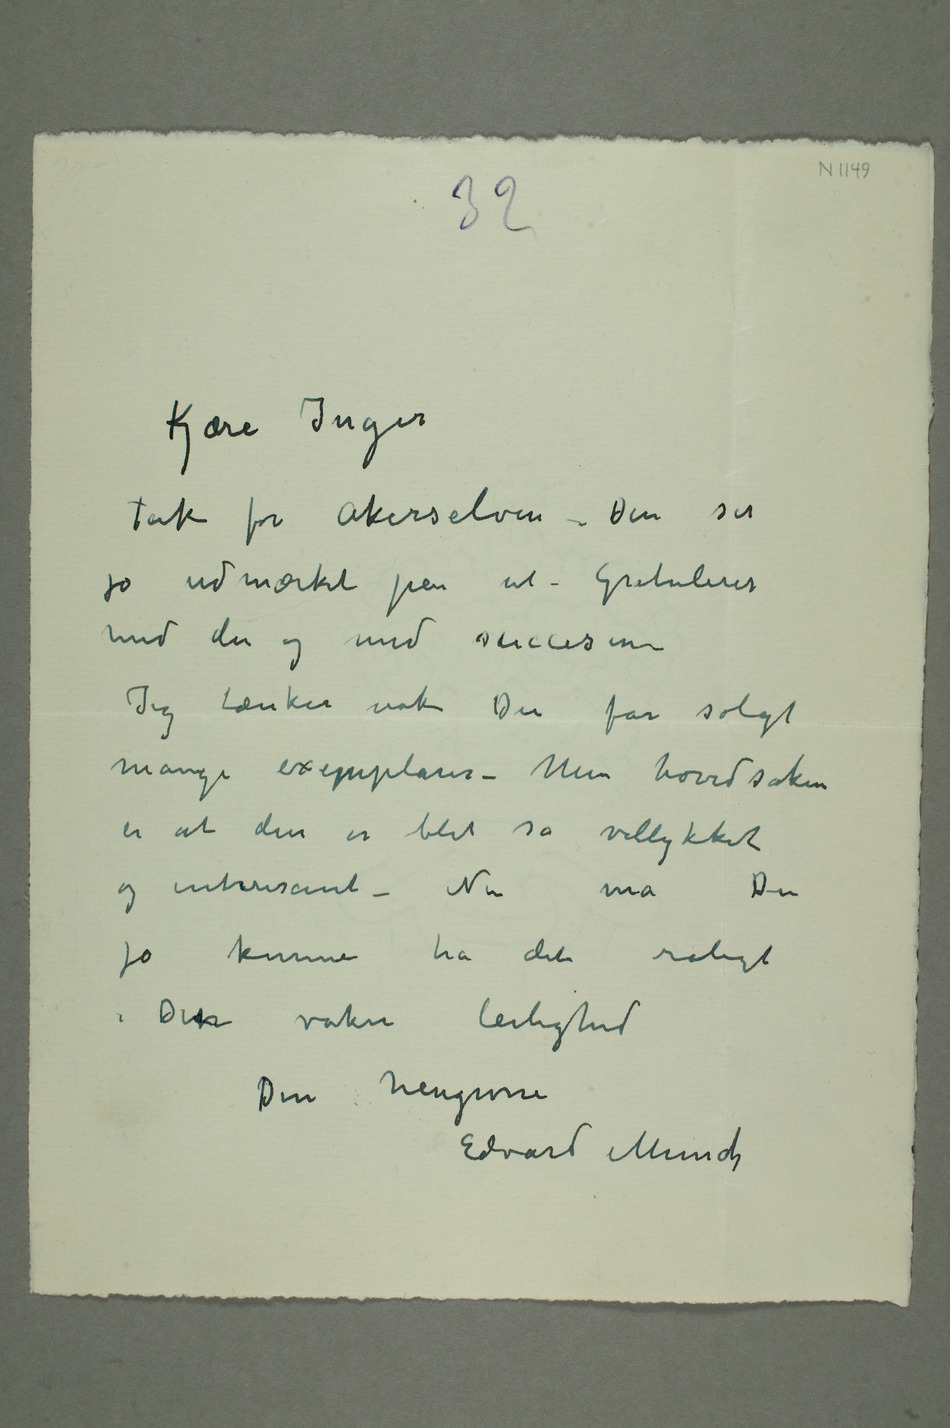 N 1149
32
Kjære Inger
Tak for Akerselven – Den ser
jo udmærket pen ut – Gratulerer
med den og med succesen
Jeg tænker nok Du får solgt
mange exemplarer – Men hovedsaken
er at den er blet så vellykket
og intressant – Nu må Du
jo kunne ha det roligt
i Din vakre leilighed
Din hengivne
Edvard Munch